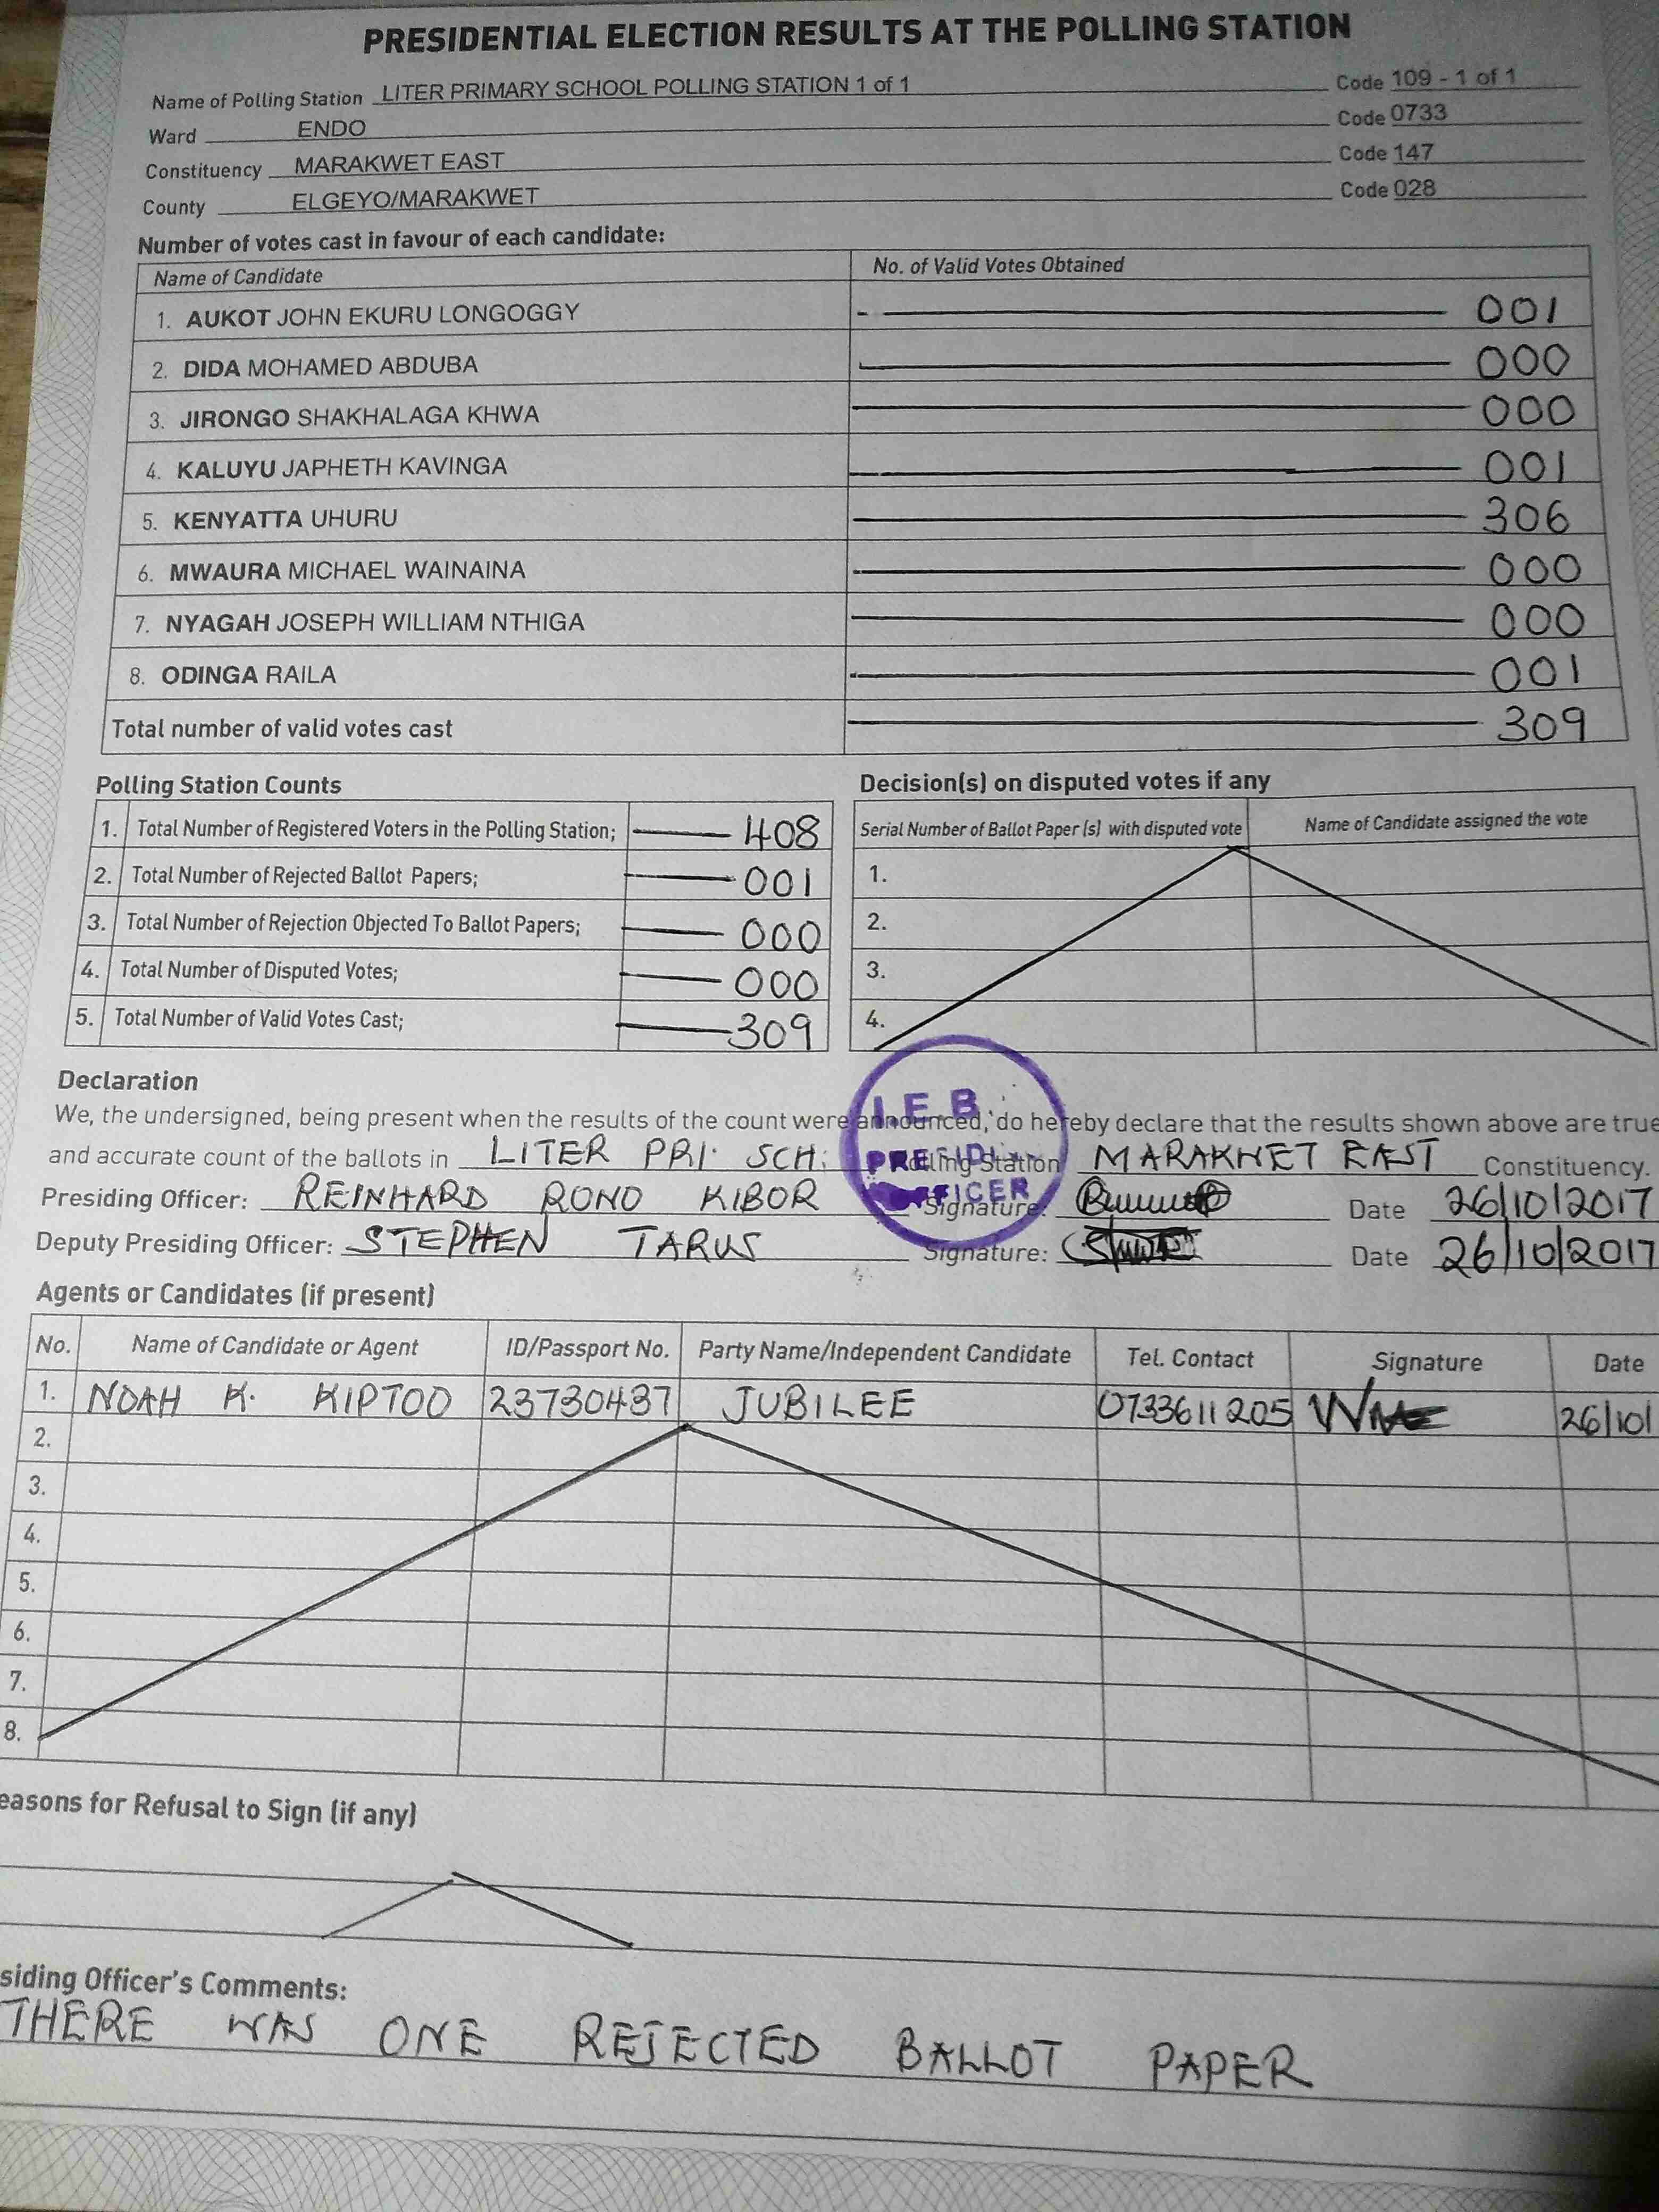 PRESIDENTIAL ELECTION RESULTS AT THE POLLING STATION
Name of Polling Station LITER PRIMARY SCHOOL POLLING STATION 1 of 1 Code 109 - 1 of 1
Ward ENDO Code 0733
Constituency MARAKWET EAST Code 147
County ELGEYO/MARAKWET Code 028
Number of votes cast in favour of each candidate:
Name of Candidate No. of Valid Votes Obtained
1. AUKOT JOHN EKURU LONGOGGY 001
2. DIDA MOHAMED ABDUBA 000
3. JIRONGO SHAKHALAGA KHWA 000
4. KALUYU JAPHETH KAVINGA 001
5. KENYATTA UHURU 306
6. MWAURA MICHAEL WAINAINA 000
7. NYAGAH JOSEPH WILLIAM NTHIGA 000
8. ODINGA RAILA 001
Total number of valid votes cast 309
Polling Station Counts
1. Total Number of Registered Voters in the Polling Station; 408
2. Total Number of Rejected Ballot Papers; 001
3. Total Number of Rejection Objected To Ballot Papers; 000
4. Total Number of Disputed Votes; 000
5. Total Number of Valid Votes Cast; 309
Decision(s) on disputed votes if any
Serial Number of Ballot Paper (s) with disputed vote Name of Candidate assigned the vote
1.
2.
3.
4.
Declaration
We, the undersigned, being present when the results of the count were announced, do hereby declare that the results shown above are true
and accurate count of the ballots in LITER PRI. SCH. Polling Station MARAKWET EAST Constituency.
Presiding Officer: REINHARD RONO KIBOR Signature: Date 26/10/2017
Deputy Presiding Officer: STEPHEN TARUS Signature: Date 26/10/2017
I.E.B.
OFFICER
Agents or Candidates (if present)
No. Name of Candidate or Agent ID/Passport No. Party Name/Independent Candidate Tel. Contact Signature Date
1. NOAH K. KIPTOO 23730437 JUBILEE 0733611205 26/10/
2.
3.
4.
5.
6.
7.
8.
easons for Refusal to Sign (if any)
siding Officer's Comments:
THERE WAS ONE REJECTED BALLOT PAPER